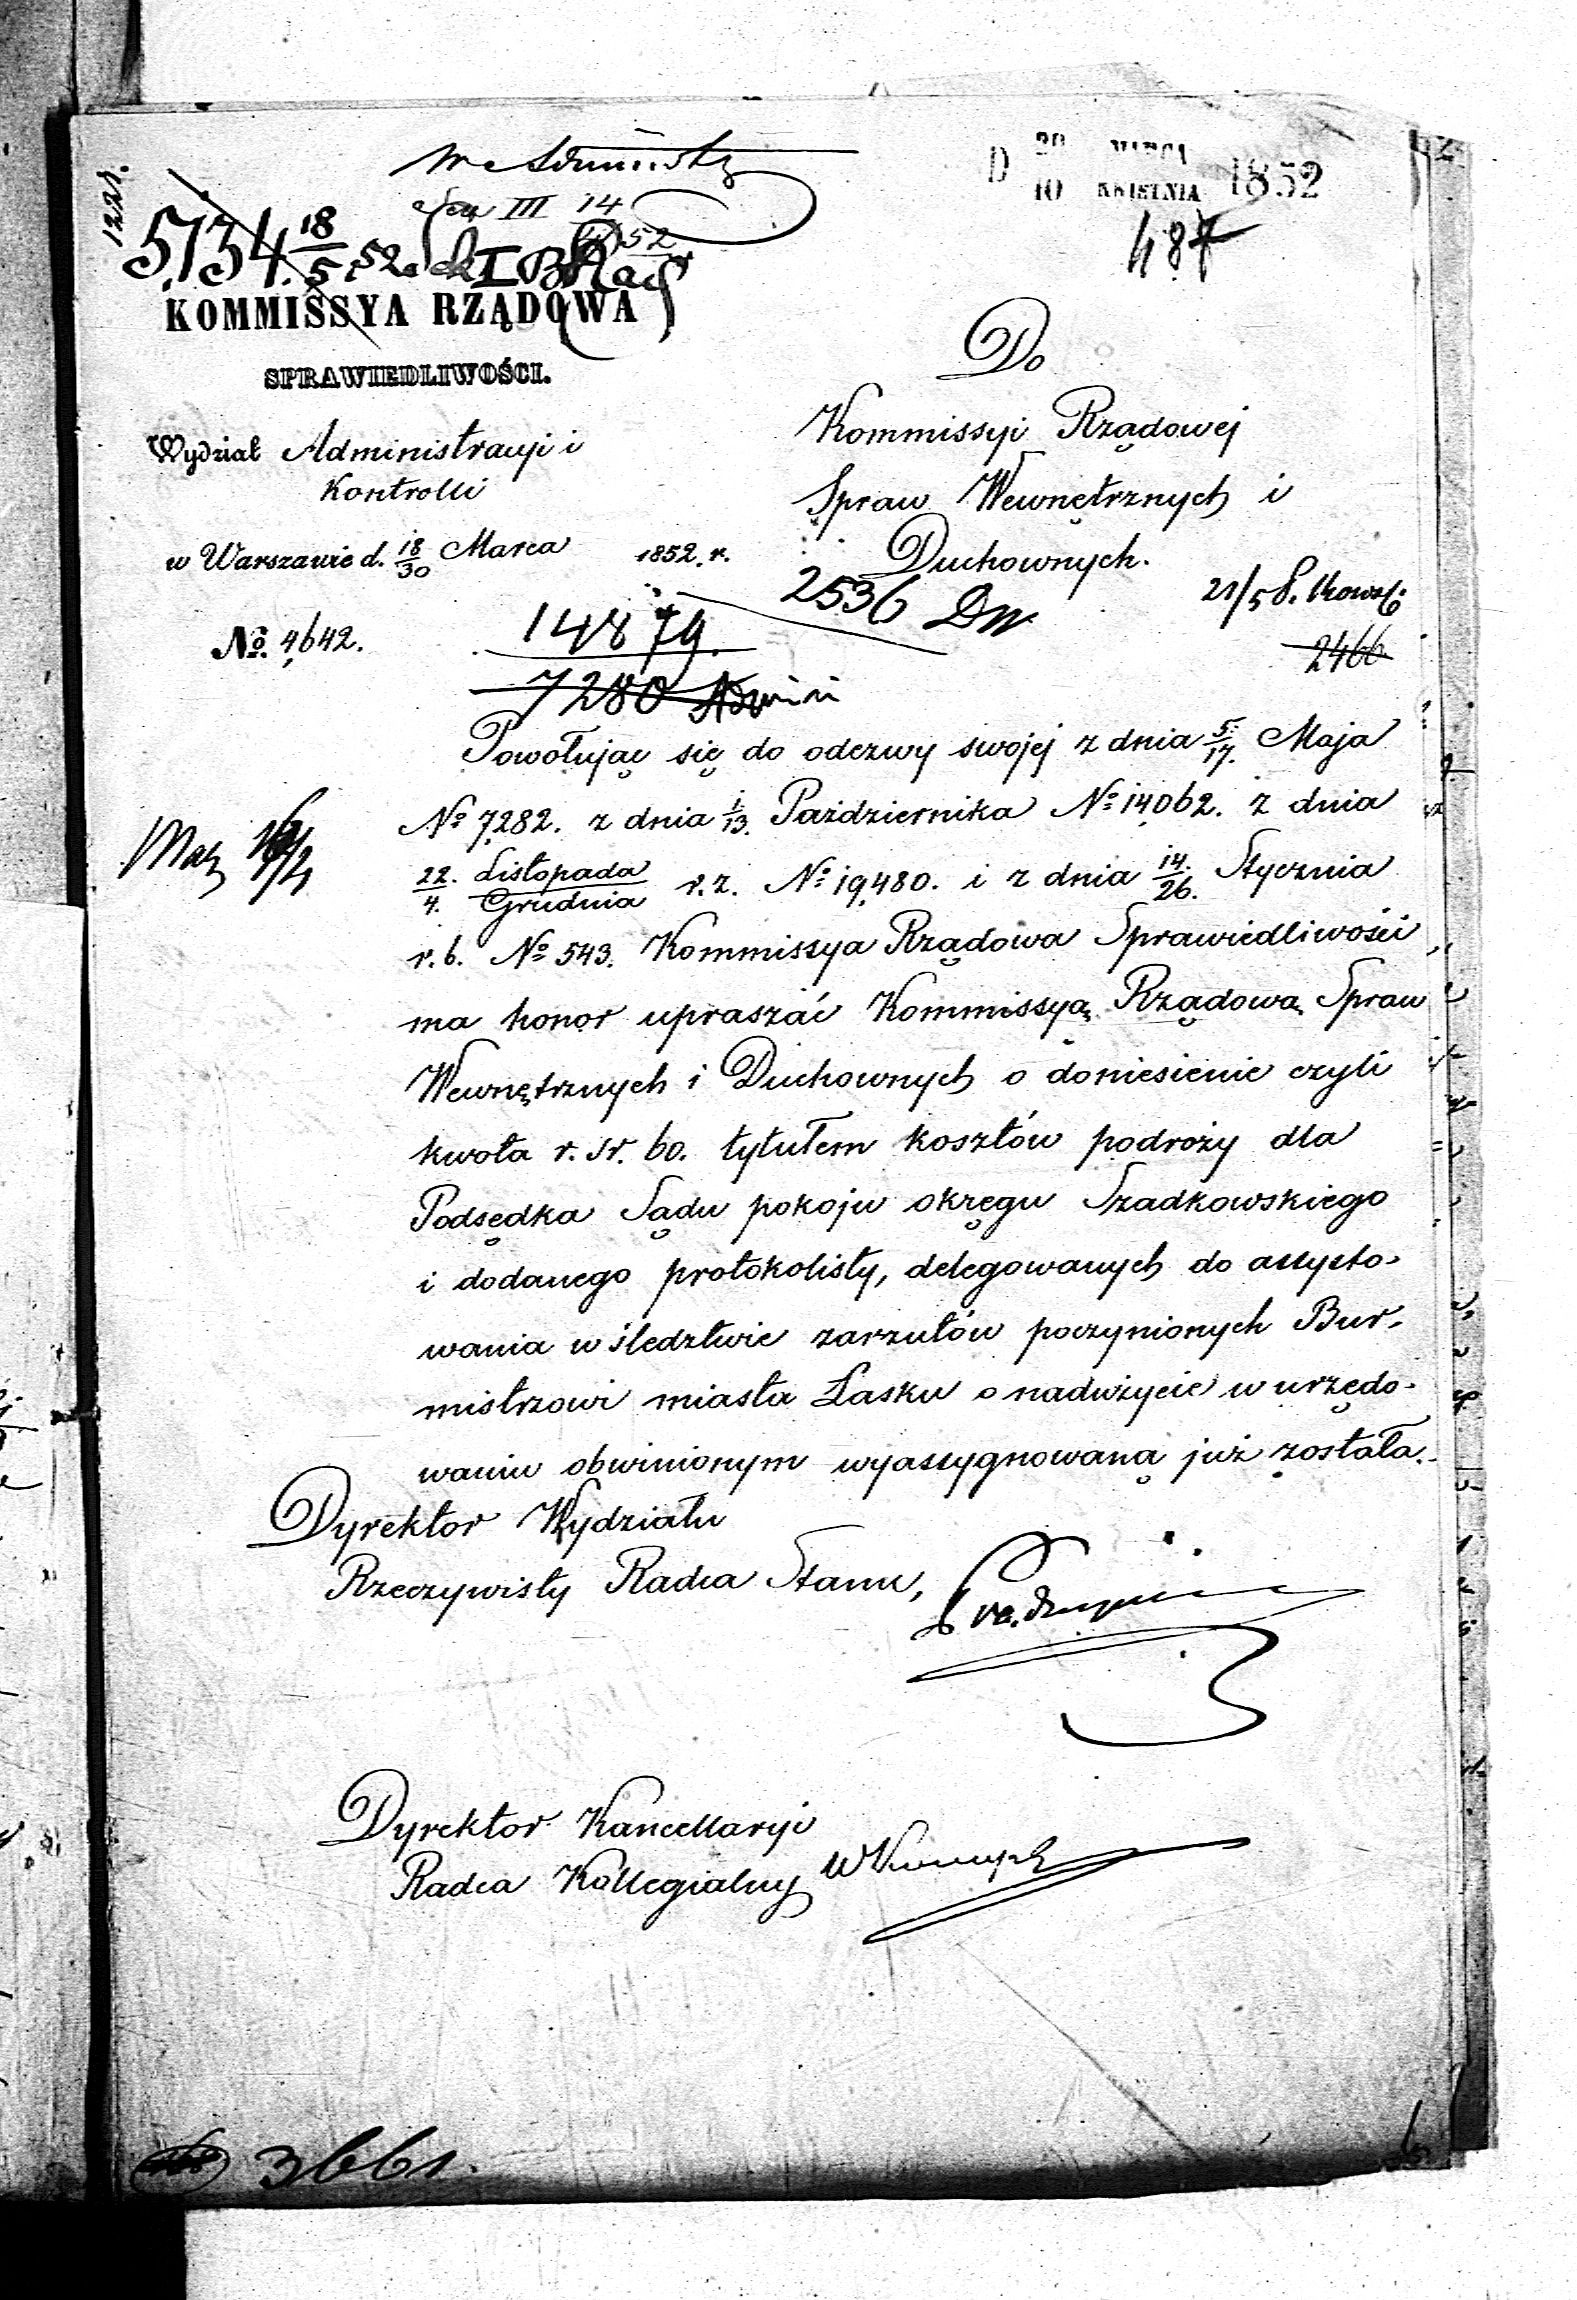 1221.
D 29 MARCA 1852
10 KWIETNIA
III 14
52
5134. 18/5 52.
487
KOMMISSYA RZĄDOWA
SPRAWIEDLIWOŚCI.
Wydział Administracyi i
Kontrolli
w Warszawie d. 18/30 Marca 1852. r.
No. 4642.
Do
Kommissyi Rządowej
Spraw Wewnętrznych i
Duchownych.
2536
21/5
2466
14879.
7280 Admin
Powołując się do odezwy swojej z dnia 5/17. Maja
No 7282. z dnia 1/13. Października No 14062. z dnia
22. Listopada / 4. Grudnia r. z. No 19,480. i z dnia 14./26. Stycznia
r. b. No 543. Kommissya Rządowa Sprawiedliwości
ma honor upraszać Kommissyą Rządową Spraw
Wewnętrznych i Duchownych o doniesienie czyli
kwota r. sr. 60. tytułem kosztów podroży dla
Podsędka Sądu pokoju okręgu Szadkowskiego
i dodanego protokolisty, delegowanych do assysto-
wania w śledztwie zarzutów poczynionych Bur-
mistrzowi miasta Łasku o nadużycie w urzędo-
waniu obwinionym wyassygnowaną już została.
Dyrektor Wydziału
Rzeczywisty Radca Stanu,
Dyrektor Kancellaryi
Radca Kollegialny
3661.